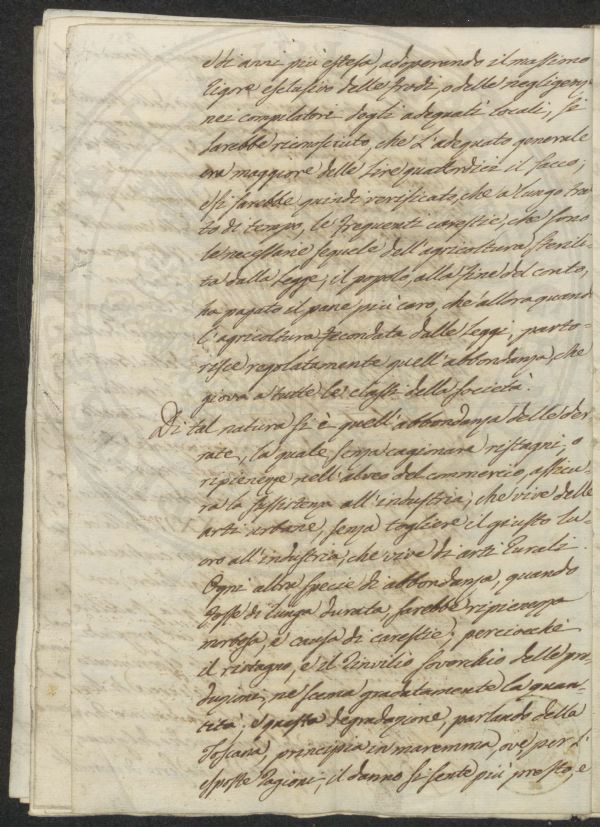 e di anzi più estesa, adoperando il massimo
rigore esclusivo delle frodi, o delle negligen-
nei compilatori degli adequati locali, si
sarebbe riconosciuto, che l'adequato generale
era maggiore delle lire quattordici il sacco;
e si sarebbe quindi verificato, che a lungo trat-
to di tempo, le frequenti carestie, che sono
le necessarie sequele dell'agricoltura sterili-
ta dalla legge; il popolo, alla fine del conto,
ha pagato il pane più caro, che allora quando
l'agricoltura fecondata dalle leggi parto-
risce regolatamente quell'abbondanza, che
giova a tutte le classi della società.
Di tal natura si è quell'abbondanza delle der-
rate, la quale, senza cagionare ristagni, o
ripienezze nell'alveo del commercio, assicu-
ra la sussistenza all'industria, che vive delle
arti urbane, senza togliere il giusto lu-
cro all'industria, che vive di arti rurali.
Ogni altra specie di abbondanza, quando
fosse di lunga durata, sarebbe ripienezza
morbosa, e causa di carestie; perciocchè
il ristagno, e il rinvilio soverchio delle pro-
duzioni, ne scema gradatamente la quan-
tità. Questa degradazione, parlando della
Toscana, principia in maremma, ove, per l'
esposte ragioni, il danno si sente più presto, e